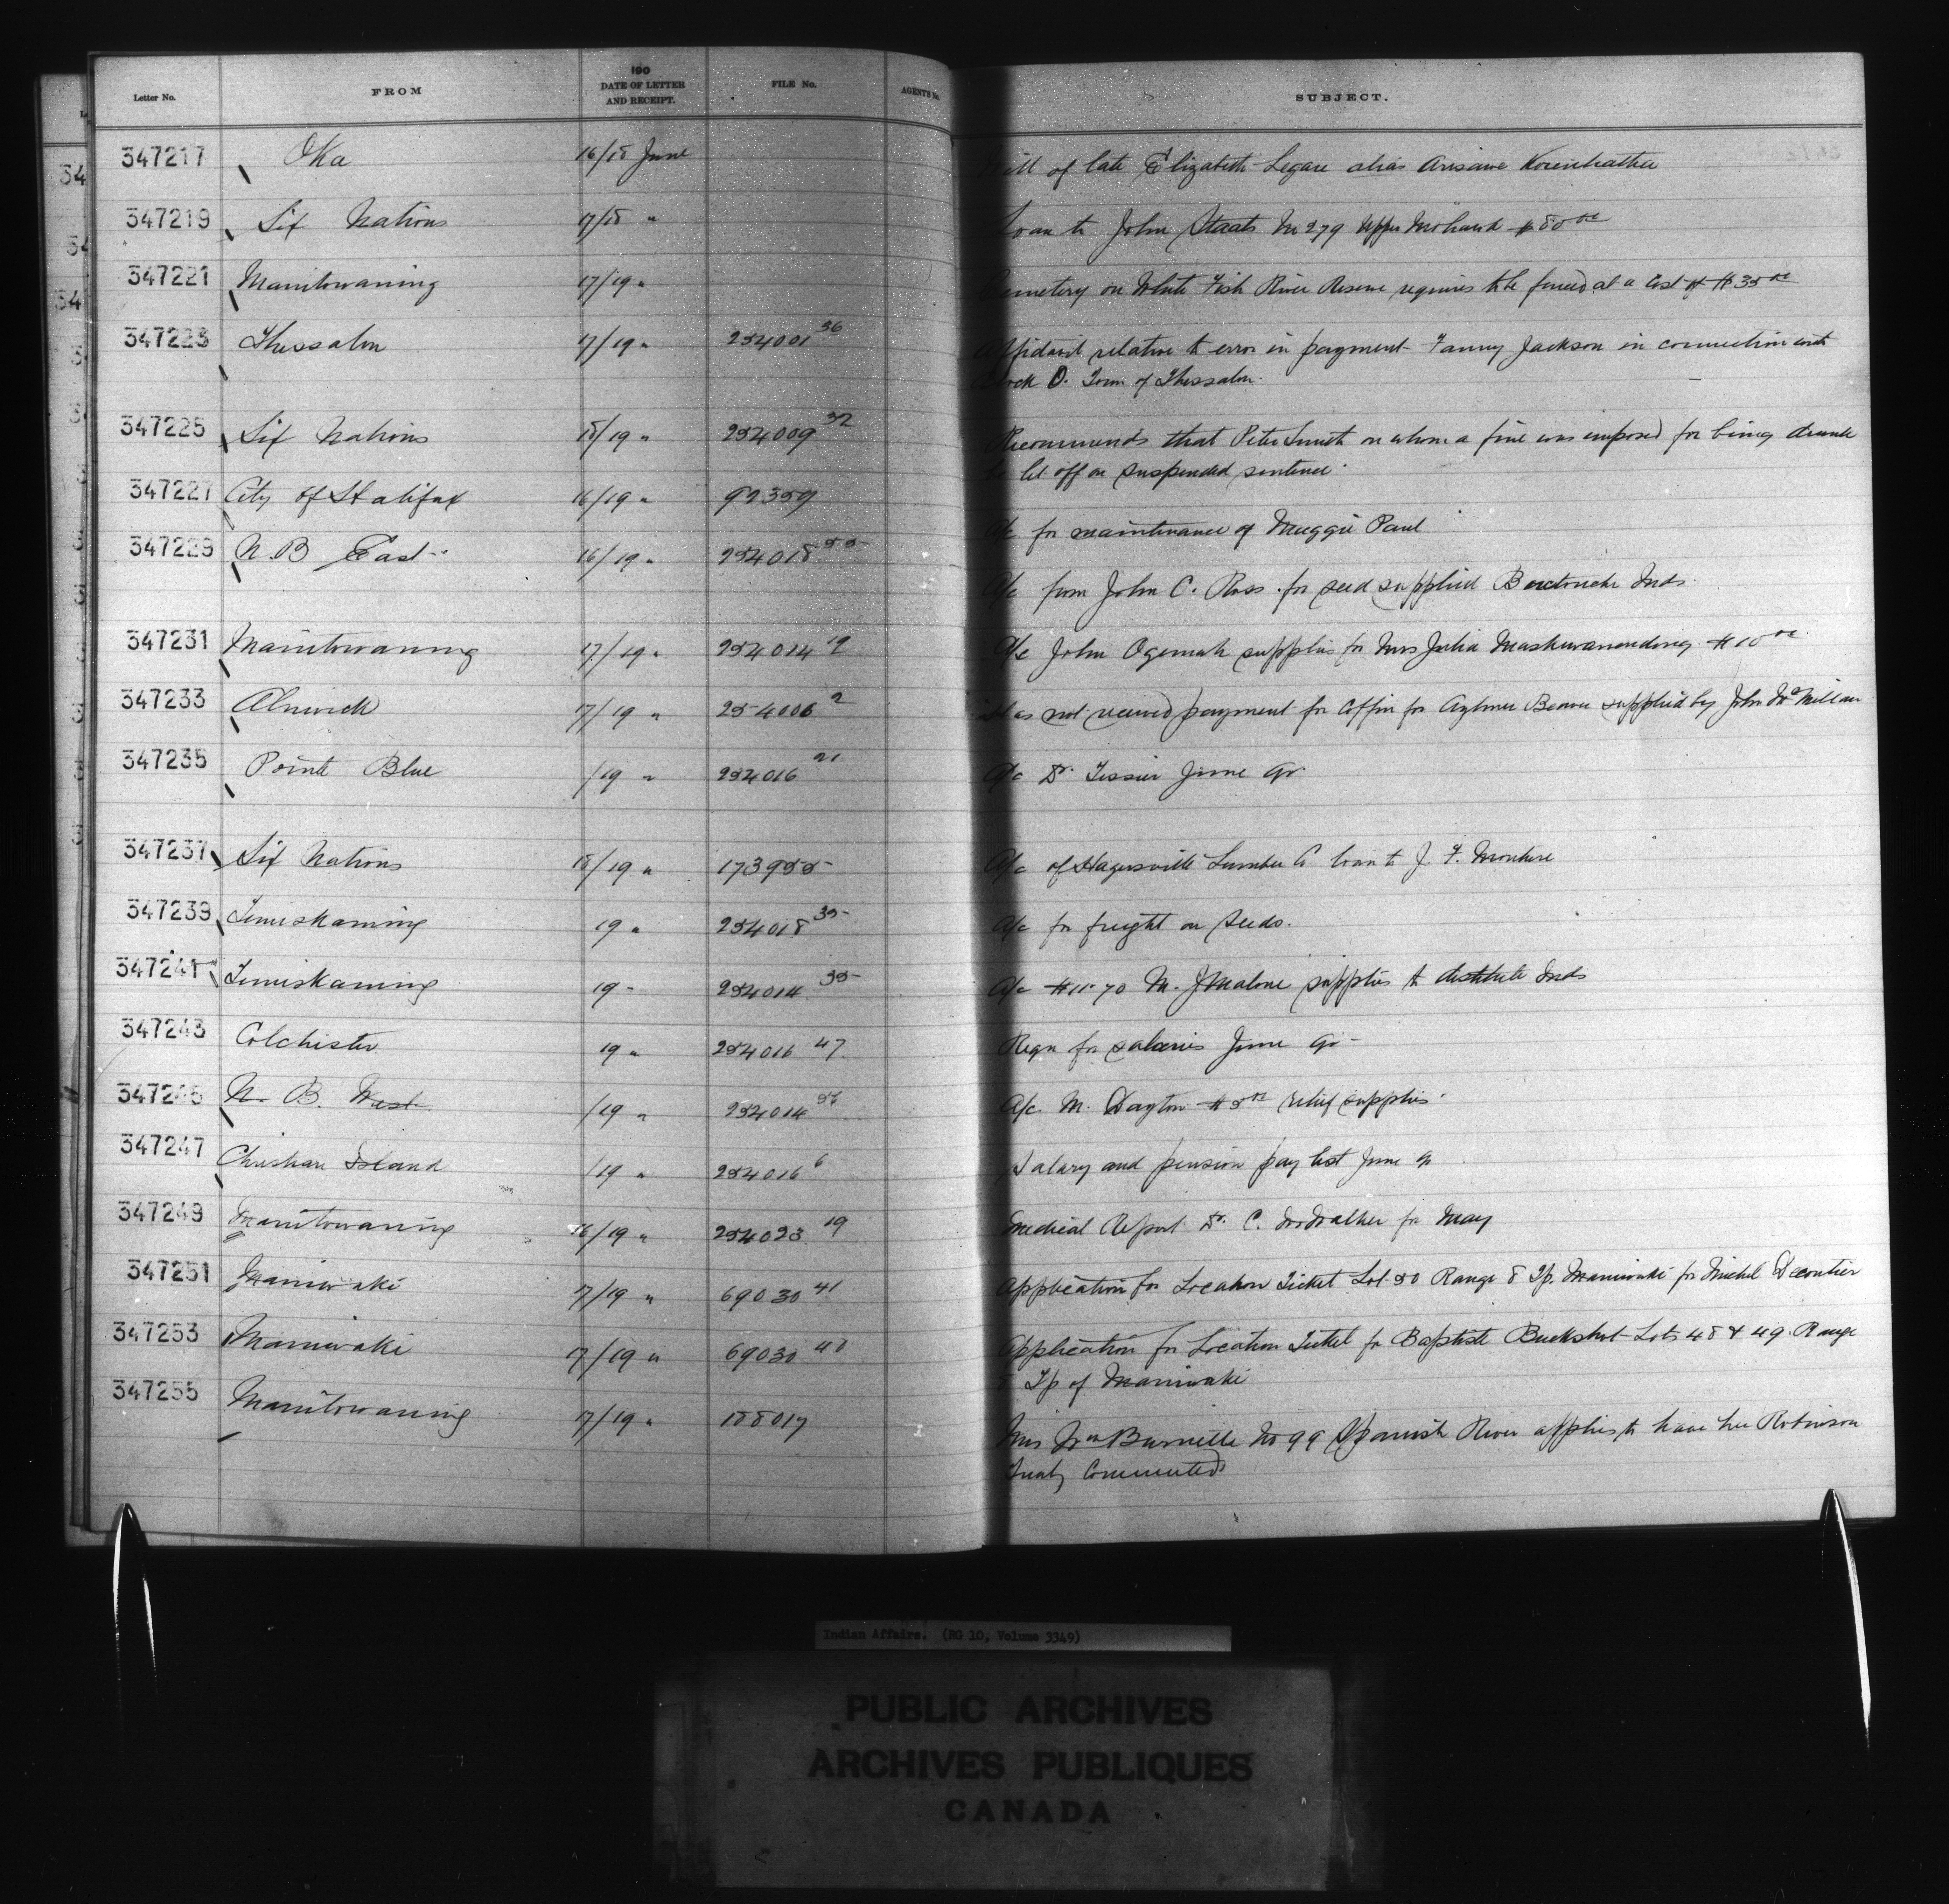 Letter No. FROM 190 DATE OF LETTER AND RECEIPT. FILE No. AGENT'S No. SUBJECT.
347217 Oka 16/18 June Will of late Elizabeth Legare alias
347219 Six Nations 17/18 " Loan to John Staats No 279 Upper Mohawk $80 00
347221 Manitowaning 17/19 " Cemetery on White Fish River Reserve requires to be fenced at a cost of $35 00
347223 Thessalon 17/19 " 254001 36 Affidavit relative to error in payment Fanny Jackson in connection with
Block O. Town of Thessalon.
347225 Six Nations 18/19 " 254009 32 Recommends that Peter Smith on whom a fine was imposed for being drunk
be let off on suspended sentence.
347227 City of Halifax 16/19 " 92359
A/c for maintenance of Maggie Paul
347229 N.B East 16/19 " 254018 55
A/c from John C. Ross for seed supplied Buctouche Inds.
347231 Manitowaning 17/19 " 254014 19 A/c John Ogemah supplies for Mrs Julia $10 00
347233 Alnwick 17/19 " 254006 2 Has not received payment for coffin for Aylmer Beaver supplied by John McMillan
347235 Pointe Blue /19 " 254016 21 A/c Dr. Tessier June qr
347237 Six Nations 18/19 " 173955 A/c of Hagersville Lumber Co loan to J. F. Monture
347239 Temiskaming 19 " 254018 35 A/c for freight on seeds.
347241 Temiskaming 19 " 254014 35 A/c $11.70 M. J Malone supplies to destitute Inds
347243 Colchester 19 " 254016 47 Reqn for salaries June qr
347245 N. B. West /19 " 254014 A/c. M. Dayton $5 00 relief supplies.
347247 Christian Island /19 " 254016 6 Salary and pension pay list June qr
347249 Manitowaning 16/19 " 254023 19 Medical Report Dr. C. for May
347251 Maniwaki 17/19 " 69030 41 Application for Location Ticket Lot 50 Range 8 Tp. Maniwaki for Michel Decontier
347253 Maniwaki 17/19 " 69030 40 Application for Location Ticket for Baptiste Buckshot Lots 48 & 49 Range
Tp of Maniwaki
347255 Manitowaning 17/19 " 188017
Mrs Wm No 99 Spanish River applies to have her Robinson
Treaty Commuted
Indian Affairs. (RG 10, Volume 3349)
PUBLIC ARCHIVES
ARCHIVES PUBLIQUES
CANADA